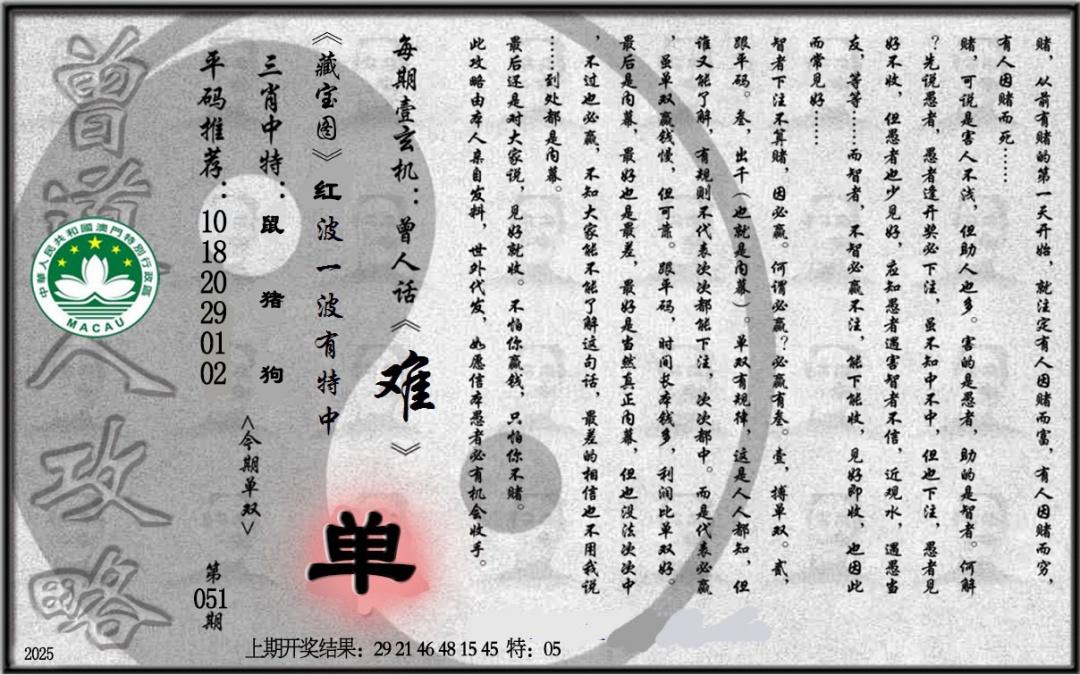 赌，从前有赌的第一天开始，就注定有人因赌而富，有人因赌而穷，
有人因赌而死……
赌，可说是害人不浅，但助人也多。害的是愚者，助的是智者。何解
？先说愚者，愚者逢开奖必下注，虽不知中不中，但也下注，愚者见
好不收，但愚者也少见好，应知愚者遇害智者不信，近观水，遇愚当
友，等等……而智者，不智必赢不注，能下能收，见好即收，也因此
而常见好……
智者下注不算赌，因必赢。何谓必赢？必赢有叁。壹，搏单双。贰，
跟平码。叁，出千（也就是内幕）。单双有规律，这是人人都知，但
谁又能了解，有规则不代表次次都能下注，次次都中。而是代表必赢
，虽单双赢钱慢，但可靠。跟平码，时间长本钱多，利润比单双好。
最后是内幕，最好也是最差，最好是当然真正内幕，但也没法次次中
，不过也必赢，不知大家能不能了解这句话，最差的相信也不用我说
……到处都是内幕。
最后还是对大家说，见好就收。不怕你赢钱，只怕你不赌。
此攻略由本人亲自发料，世外代发，如愿信本愚者必有机会收手。
每期壹玄机：曾人话《难》
《藏宝图》红波一波有特中
单
三肖中特：鼠 猪 狗
<今期单双>
平码推荐：10 18 20 29 01 02
第051期
曾道人攻略
中華人民共和國澳門特別行政區
MACAU
2025
上期开奖结果：29 21 46 48 15 45 特：05